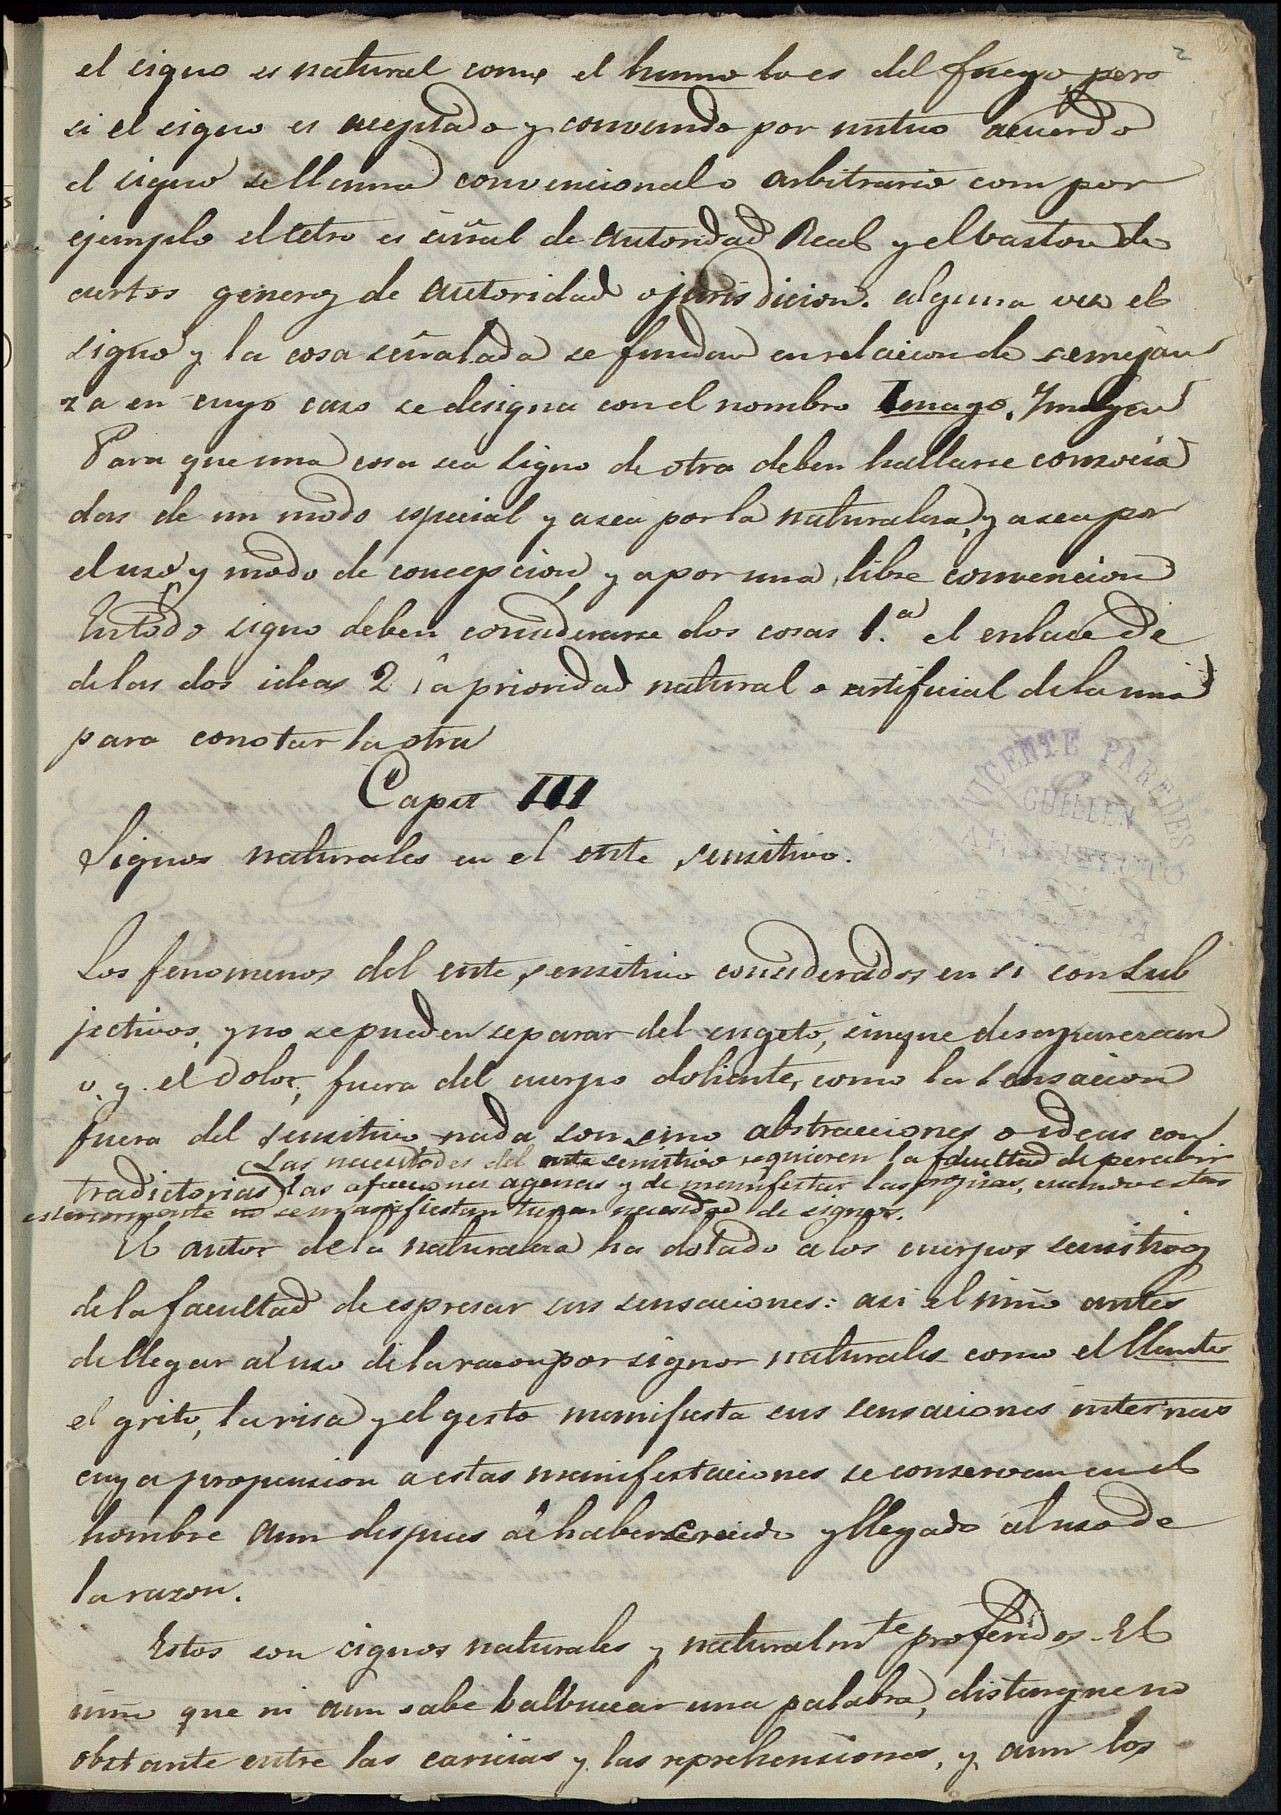 2
el signo es natural como el humo lo es del fuego, pero
si el signo es aceptado y convenido por mutuo acuerdo
el signo se llama convencional o arbitrario com por
ejemplo el cetro es señal de Autoridad Real y el baston de
ciertos generos de Autoridad o jurisdicion. alguna vez el
signo y la cosa señalada se fundan en relacion de semejan
za en cuyo caso se designa con el nombre Imago. Imagen
Para que una cosa sea signo de otra deben hallarse consocia
das de un modo especial y a sea por la naturaleza, y a sea por
el uso y modo de concepcion, y a por una libre convencion
En todo signo deben considerarse dos cosas 1.ª el enlace de
de las dos ideas 2 la prioridad natural o artificial de la una
para constar la otra
Capit III
Signos naturales en el ente sensitivo.
VICENTE PAREDES
GUILLEN
Los fenomenos del ente sensitivo considerados en si con sub
jectivos, y no se pueden separar del sugeto, sin que desaparezcan
v. g. el dolor, fuera del cuerpo doliente, como la sensacion
fuera del sensitivo nada son sino abstracciones o ideas con
tradictorias (Las necesidades del ente sensitivo requieren la facultad de percibir
las afecciones agenas y de manifestar las propias, cuando estas
esteriormente no se manifiestan tienen necesidad de signos.
El autor de la naturaleza ha dotado a los cuerpos sensitivos
de la facultad de espresar sus sensaciones: asi el niño antes
de llegar al uso de la razon por signos naturales como el llanto
el grito, la risa y el gesto manifiesta sus sensaciones internas
cuya propension a estas manifestaciones se conservan en el
hombre aun despues de haber crecido y llegado al uso de
la razon.
Estos son signos naturales y naturalmte proferidos. El
niño que ni aun sabe balbucear una palabra, distingue no
obstante entre las caricias y las reprehensiones, y aun los